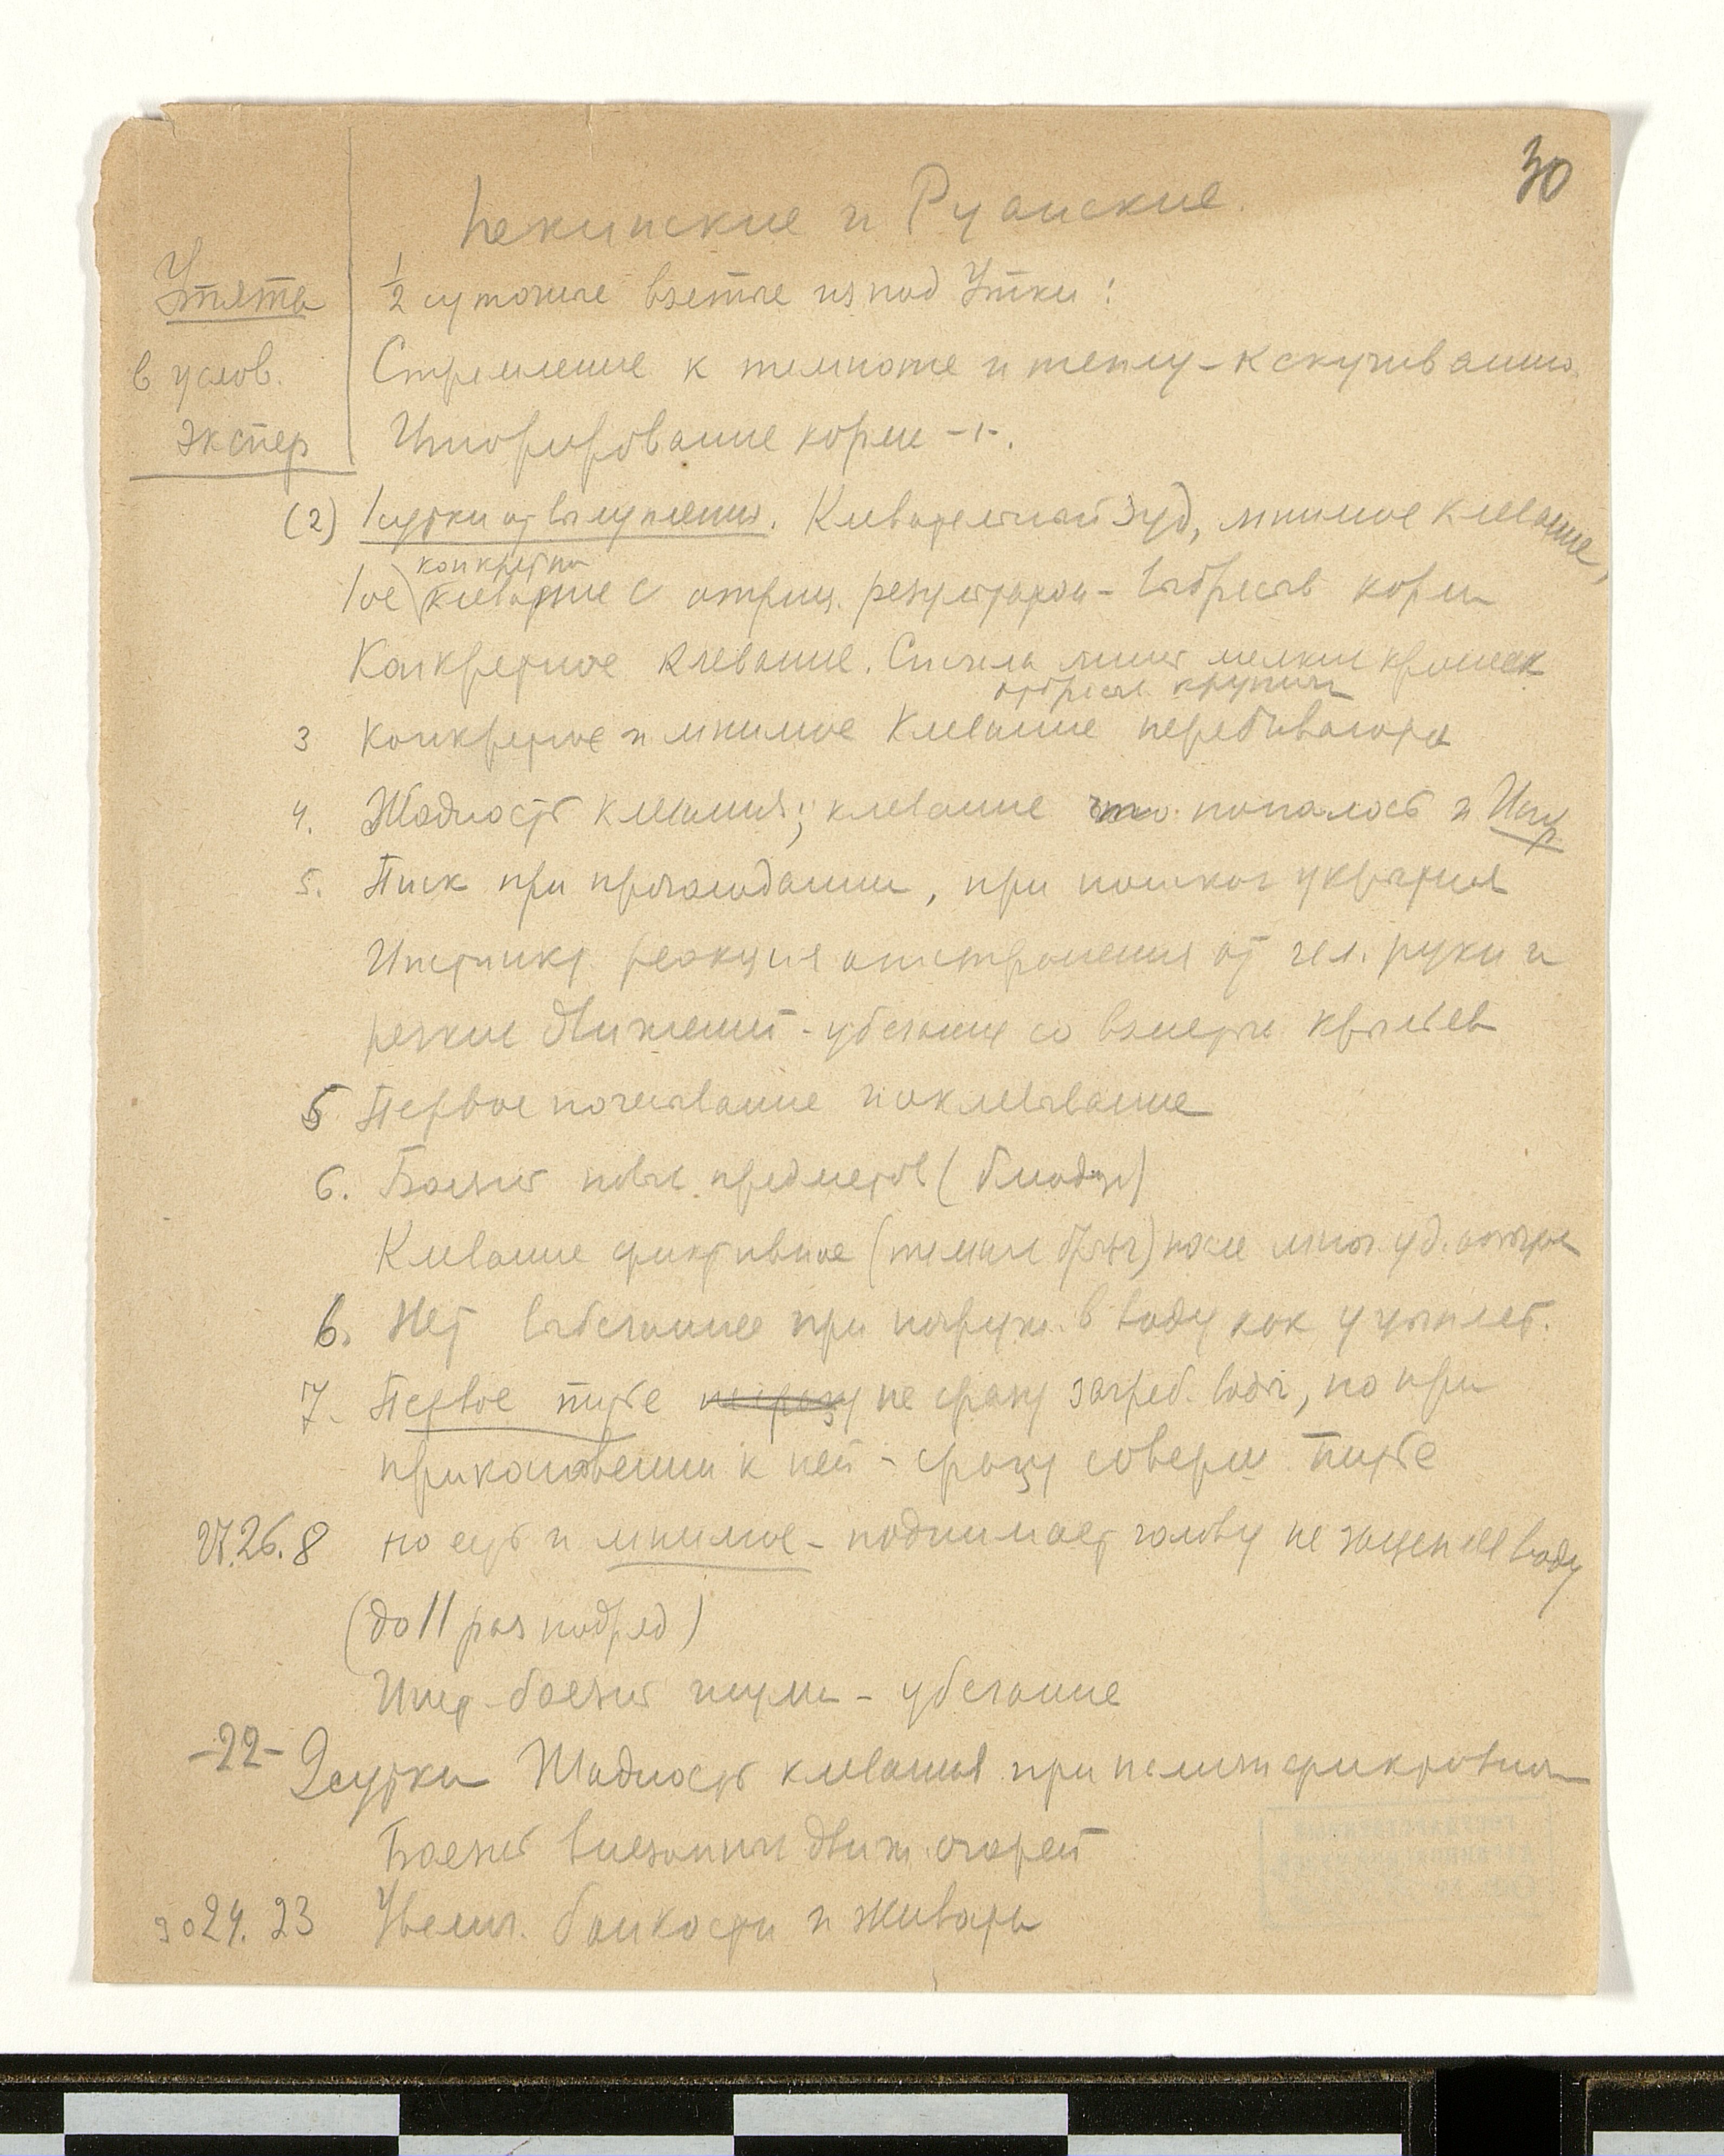 30
Пекинские и Руанские.
Утята
в услов.
экспер
1/2 суточные взятые из под Утки:
Стремление к темноте и теплу - к скучиванию.
Игнорирование корма -1-.
(2) 1 сутки от вылупления. Клевательный зуд, мнимое клевание,
конкретн
1ое) клевание с отриц. результатом - выбрасыв корм
Конкретное клевание. Сначала лишь мелких крошек
отбрасыв. крупных
3 Конкретное и мнимое клевание перебиваются
4. Жадность клевания; клевание что попалось и Игнр
5. Писк при проголодании, при поисках укрытия
Инстинкт. реакция отстранения от чел. руки и
резких движений - убегание со взметом крыльев
5 Первое почесывание и оклевывание
6. Боязнь новых предметов (блюдце)
Клевание фиктивное после мног. уд.
6. Нет выбегание при погруж. в воду как у цыплят.
7. Первое питье не сразу загреб. воды, но при
прикосновении к ней - сразу соверш. питье
VI.26.8 но есть и мнимое - поднимает голову не зацепив воду
(до 11 раз подряд)
Инст. боязнь шума - убегание
-22- 2 сутки Жадность клевания при фиктивном
Боязнь внезапных движ. очарей
30 24. 23 Увелич. бойкости и живости